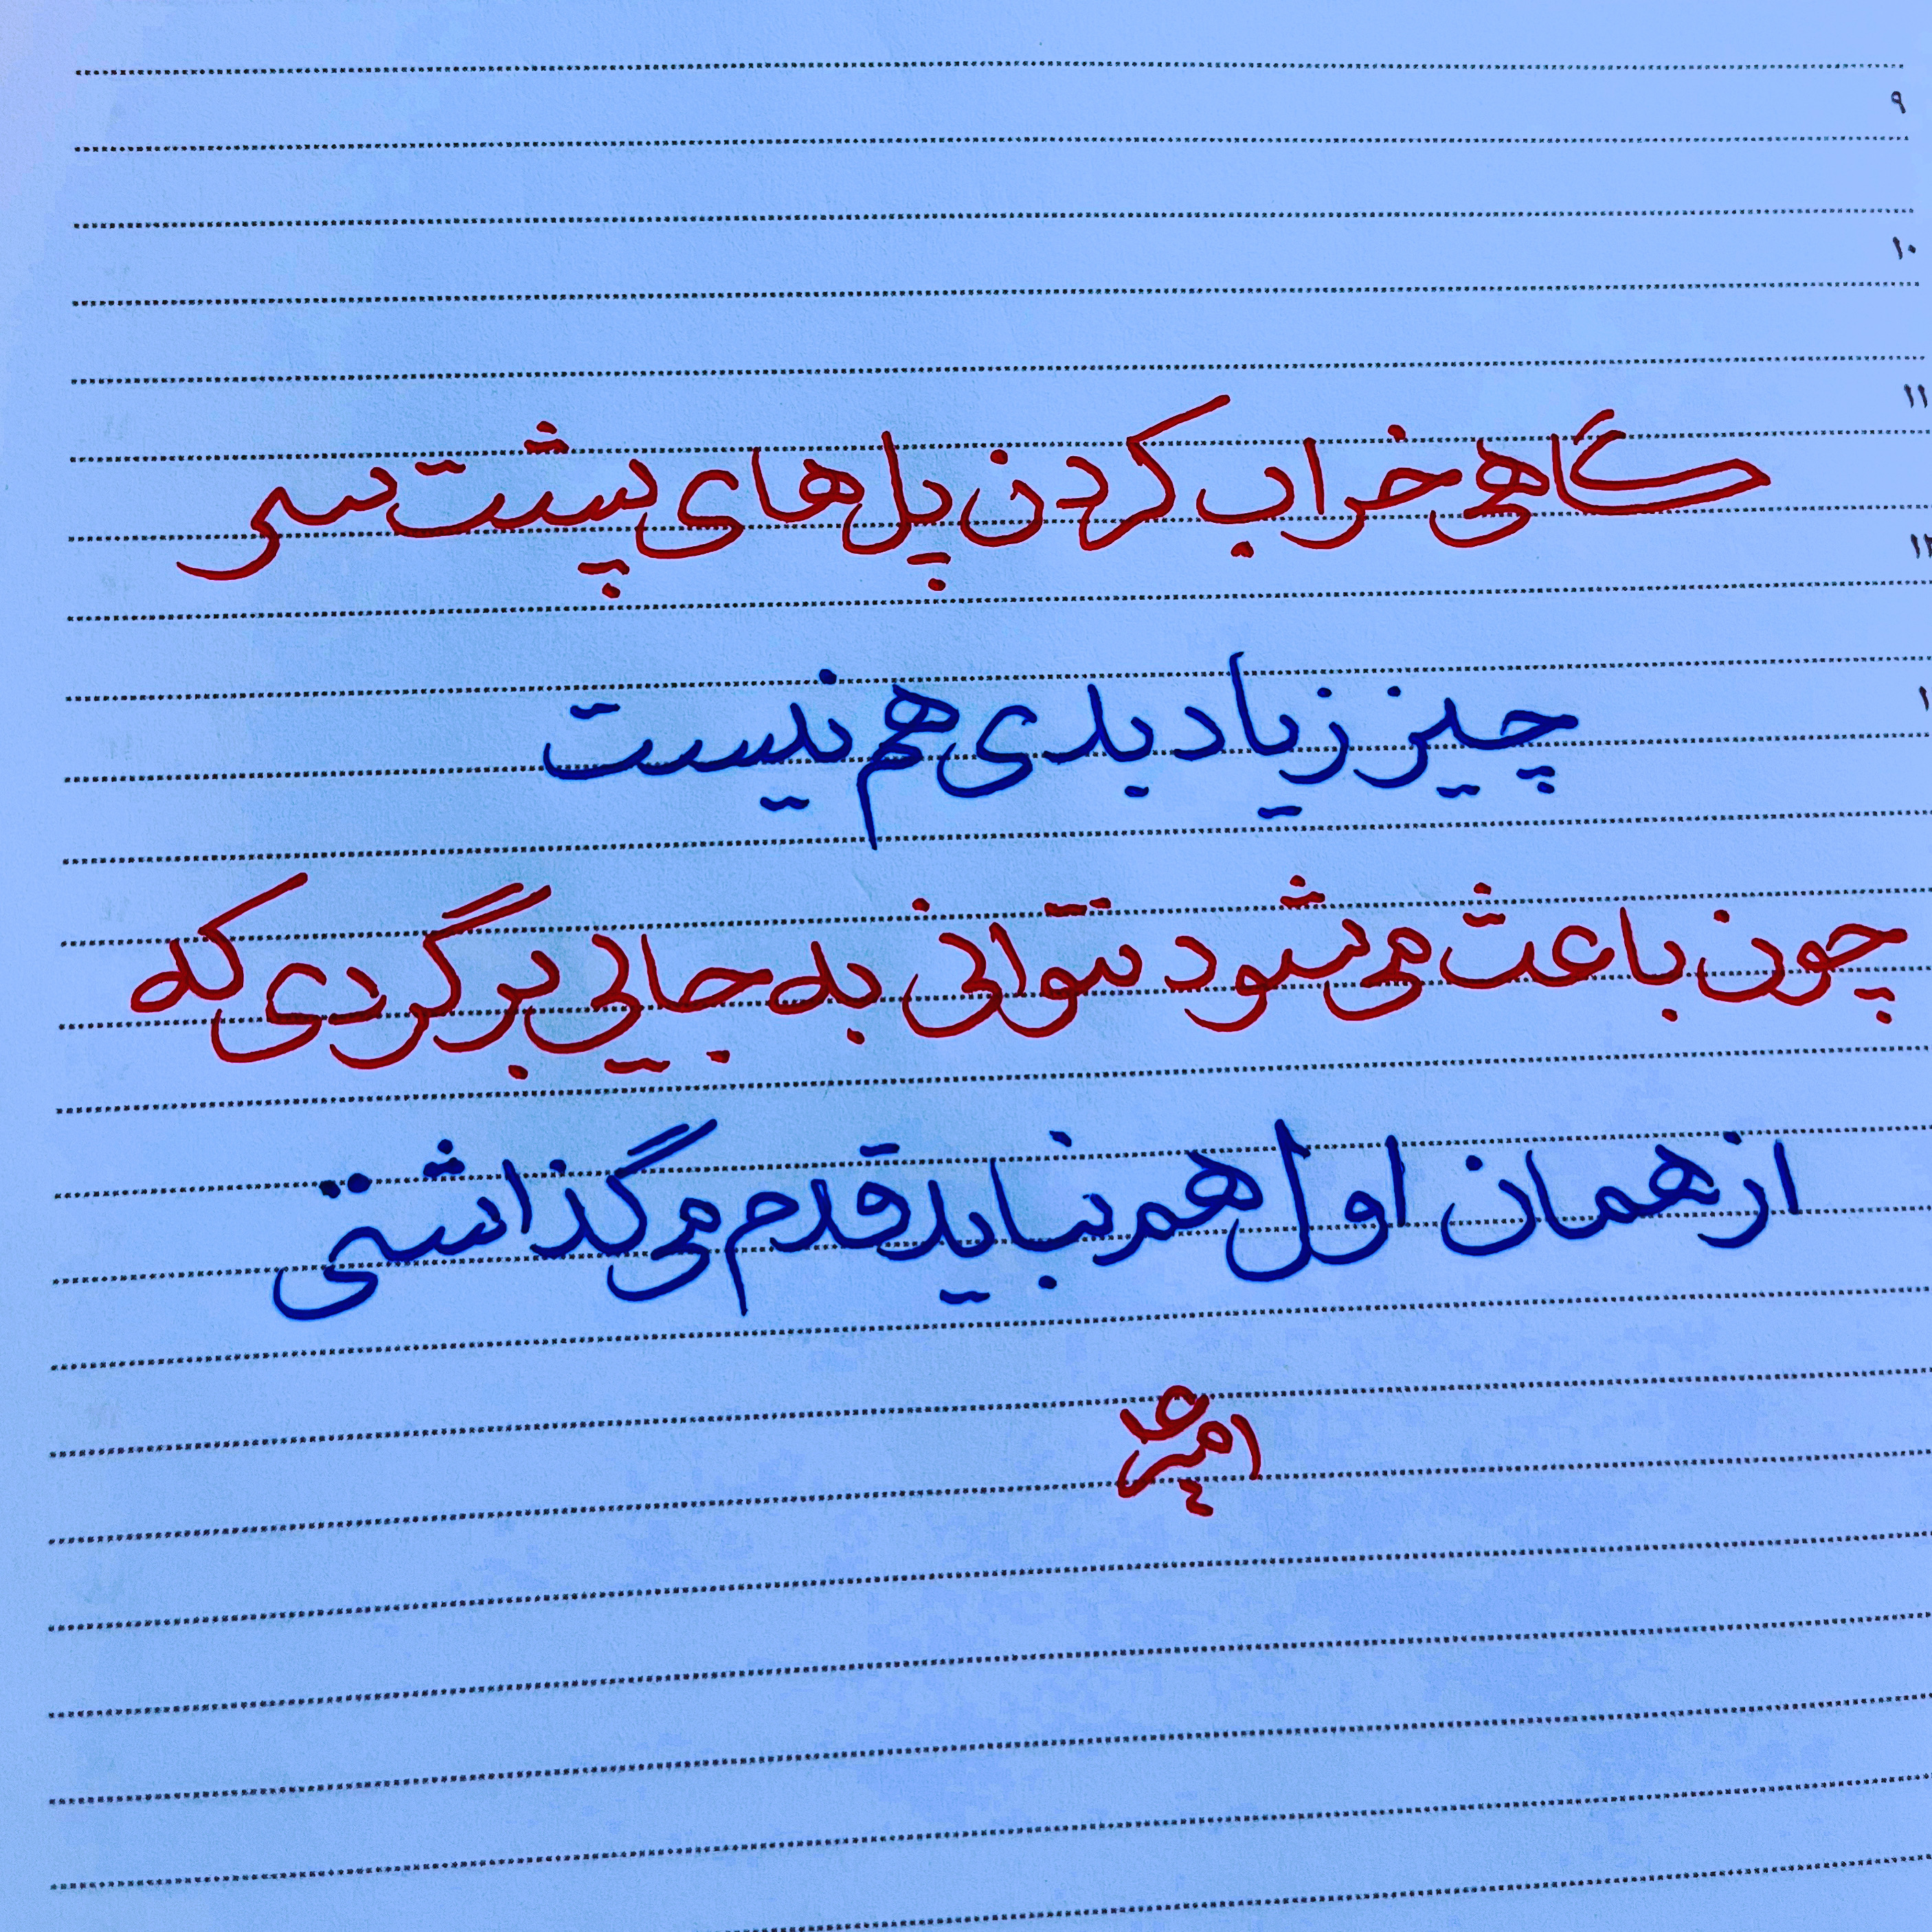 ۹
۱۰
۱۱
گاهی خراب کردن پل های پشت سر
۱۲
چیز زیاد بدی هم نیست
چون باعث می شود نتوانی به جایی برگردی که
از همان اول هم نباید قدم می گذاشتی